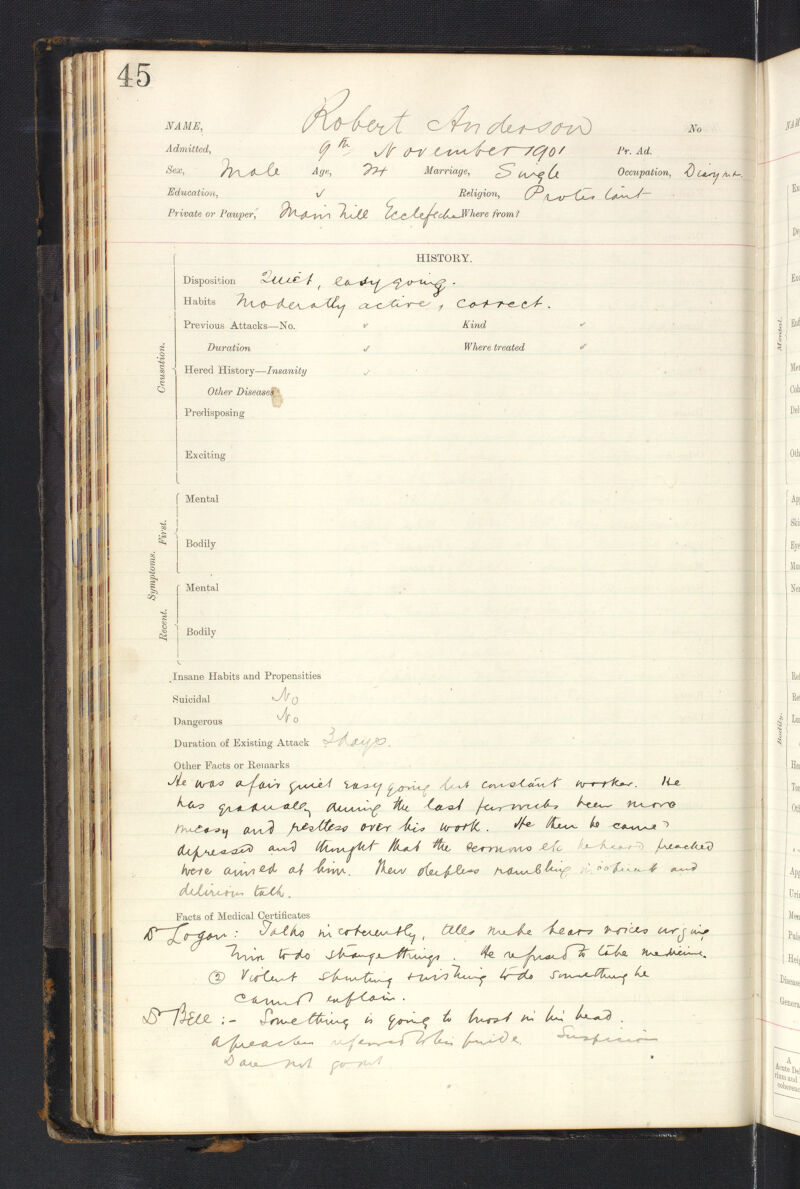 45
NAME, Robert Anderson No
Admitted, 9th November 1901 Pr. Ad.
Sex, Male Age, 24 Marriage, Single Occupation,
Education, ✓ Religion, Protestant
Private or Pauper, Mainhill Ecclefechan Where from?
HISTORY.
Disposition Quiet, easy going.
Habits Moderatly active, correct.
Previous Attacks—No. ✓ Kind ✓
Duration ✓ Where treated ✓
Hered History—Insanity ✓
Other Diseases
Predisposing
Exciting
Causation.
Mental
Bodily
First.
Symptoms.
Mental
Bodily
Recent.
Insane Habits and Propensities
Suicidal No
Dangerous No
Duration of Existing Attack 3 days.
Other Facts or Remarks
He was a fair quiet easy going but constant worker. He
has gradually during the last few weeks been more
uneasy and restless over his work. He then be came
depressed and thought that the sermons etc he heard preached
were aimed at him. Then sleepless rambling incoherent and
delirious talk.
Facts of Medical Certificates
Dr Logan: Talks incoherently, tells me he hears voices urging
him to do strange things. He refused to take medicine.
② Violent shouting & wishing to do something he
cannot explain.
Dr Bell :- Something is going to burst in his head.
A preacher referred to his pride. Suspicion
Dare not go out